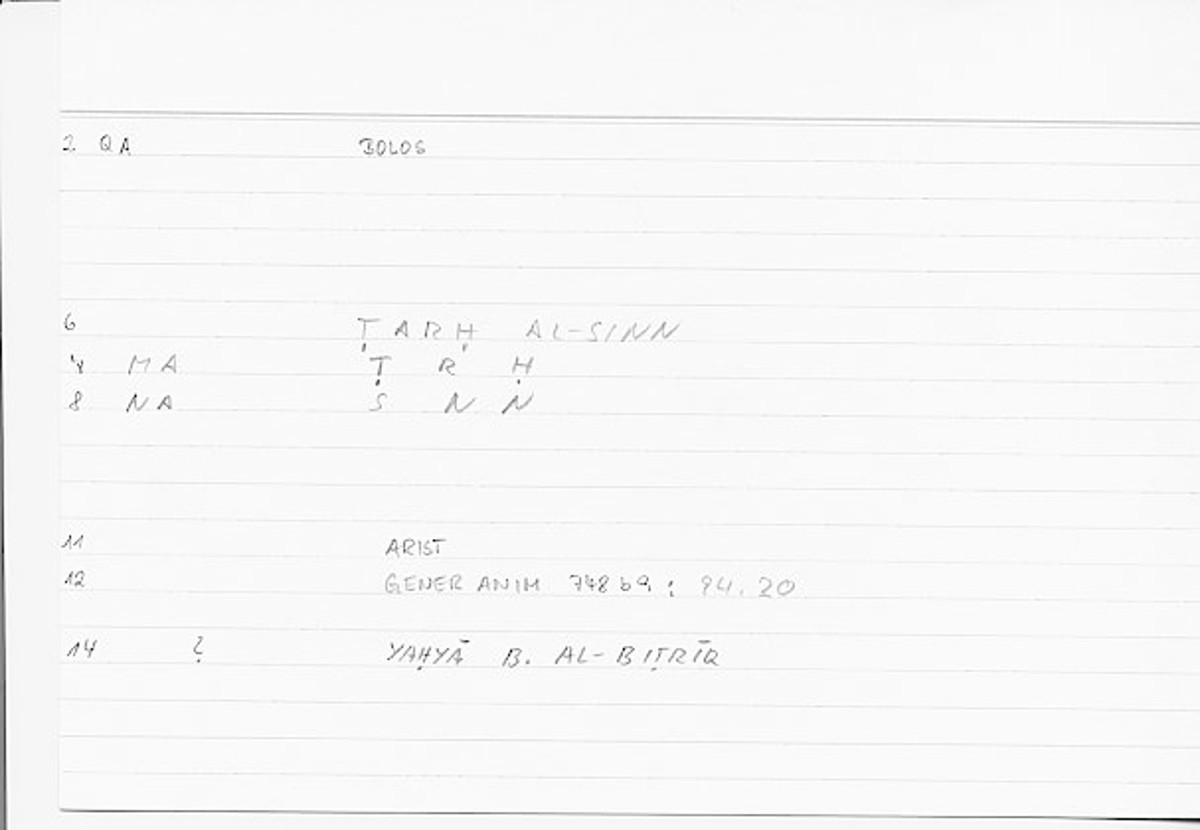 2 QA BOLOS
6 ṬARḤ AL-SINN
4 MA Ṭ R Ḥ
8 NA S N N
11 ARIST
12 GENER ANIM 748 b9 : 94.20
14 ? YAḤYĀ B. AL-BIṬRĪQ